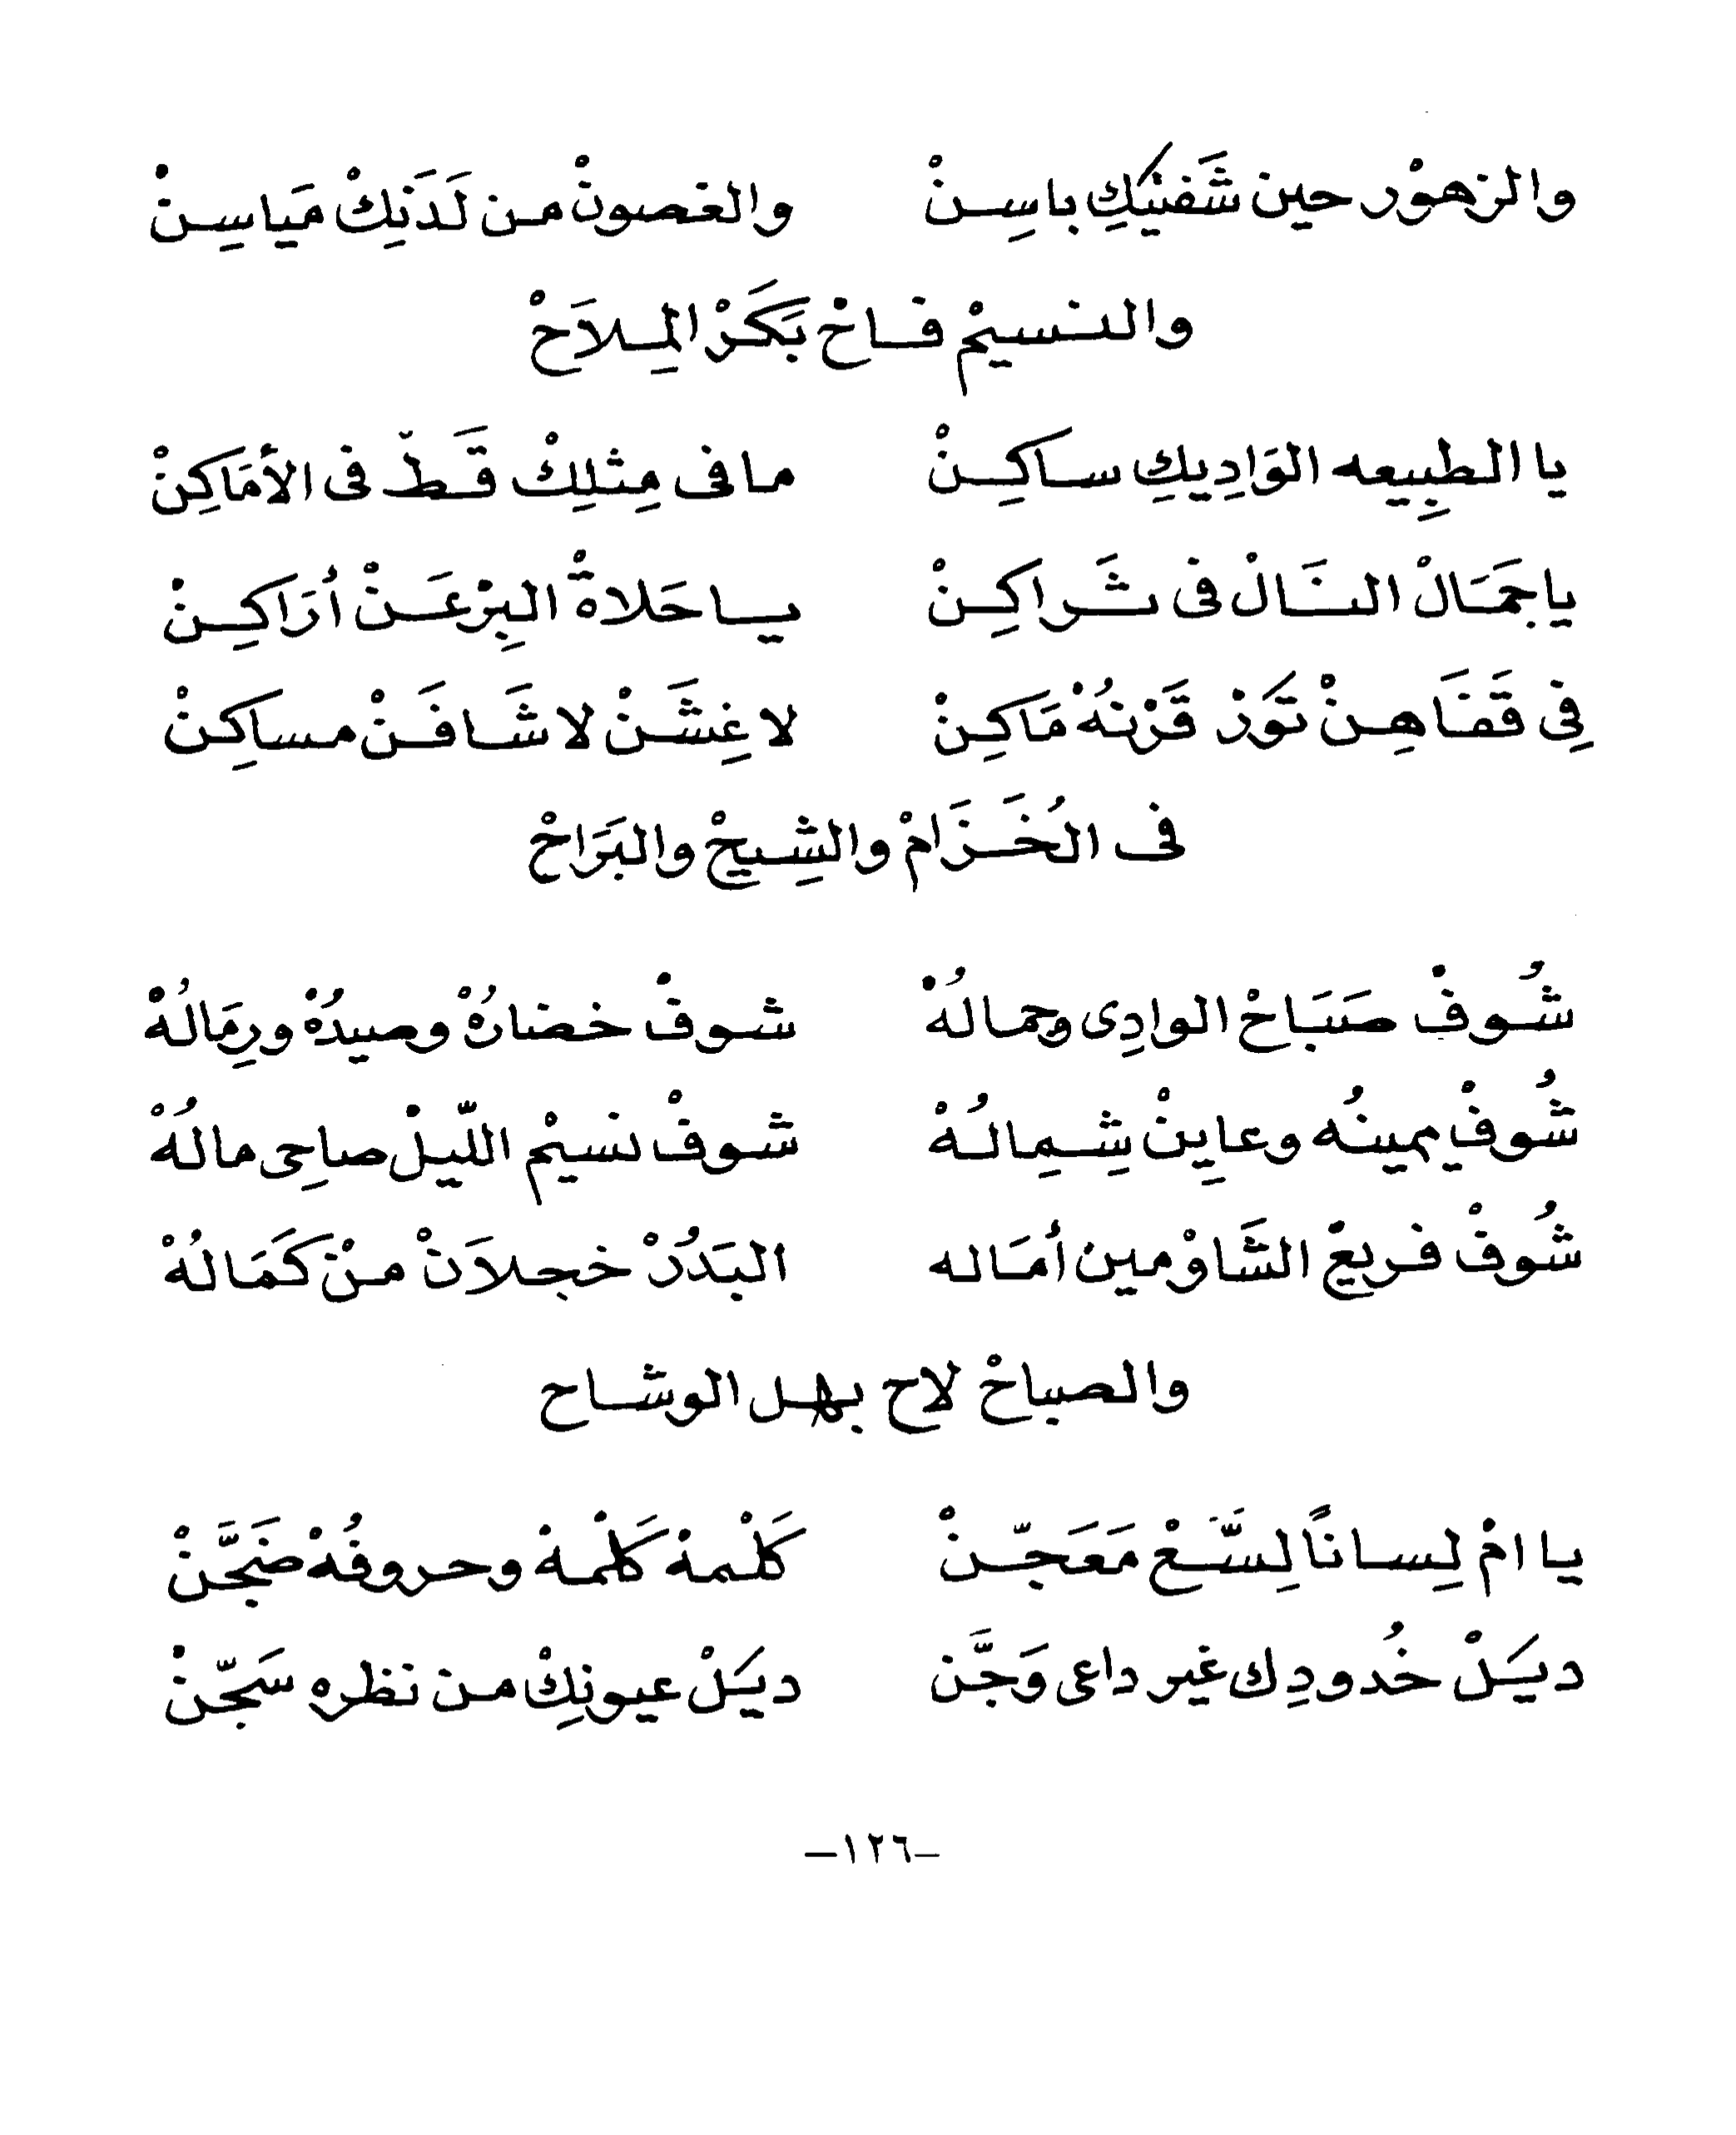 والزهوْر حين شَفنِكِ باسِنْ والغصونْ من لَدَنِكْ مَياسِنْ
والنسيمْ فاحْ بَكَرْ المِلاَحْ
يا الطبِيعه الوَادِيكِ ساكِنْ مافى مِثلِكْ قَطّ فى الأمَاكِنْ
ياجمَالْ النَالْ فى ثَراكِنْ يا حَلاةْ البِرْعَنْ أرَاكِنْ
فِي قَفَاهِنْ تَورْ قَرْنهُ مَاكِنْ لا غِشَنْ لا شَافَنْ مساكِنْ
فى الخُزَامْ والشِيحْ والبَرَاحْ
شُوفْ صَبَاحْ الوادِى وجمالُهْ شوفْ خضارُهْ وصيدُهْ ورِمَالُهْ
شُوفْ يمينُه وعايِنْ شِمِالُهْ شوفْ نسيمْ اللّيلْ صاحِى مالُهْ
شُوفْ فريعْ الشَاوْ مين أمَاله البَدُرْ خجلاَنْ منْ كَمَالُهْ
والصباحْ لاح بهل الوشاح
يا امْ لِساناً لِسَّعْ مَعَجّنْ كَلْمهْ كَلْمهْ وحروفُهْ ضَجَّنْ
ديَلْ خُدودِك غير داعى وَجَّن ديَلْ عيونِكْ من نظره سَجّنْ
–١٢٦–